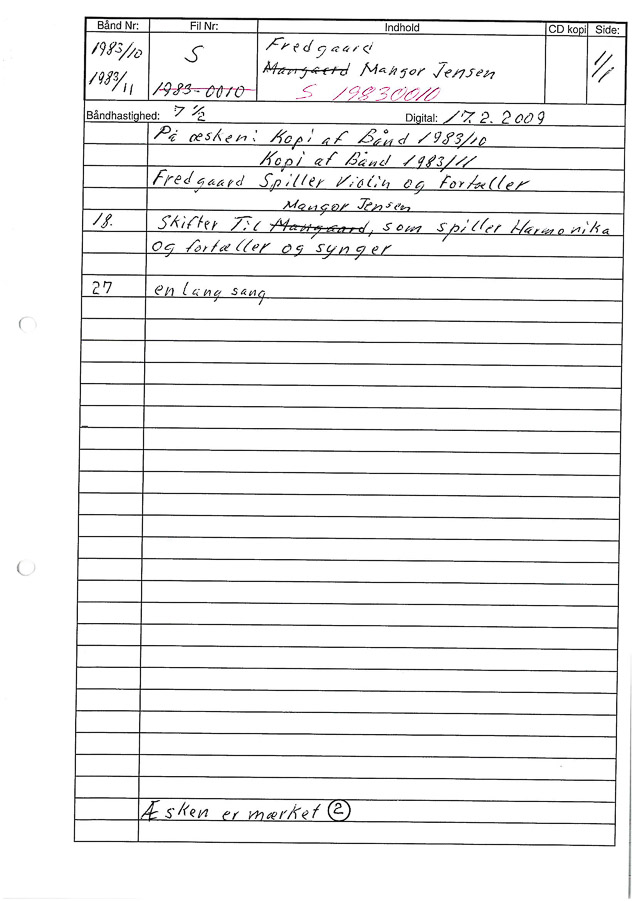 Bånd Nr: Fil Nr: Indhold CD kopi Side:
1983/10 S Fredgaard 1/1
1983/11 1983-0010 Mangaard Mangor Jensen
S 19830010
Båndhastighed: 7 1/2 Digital: 17.2.2009
På æsken: Kopi af Bånd 1983/10
Kopi af Bånd 1983/11
Fredgaard Spiller Violin og Fortæller
Mangor Jensen
18. Skifter Til Mangaard, som spiller Harmonika
og fortæller og synger
27 en lang sang
Æsken er mærket 2